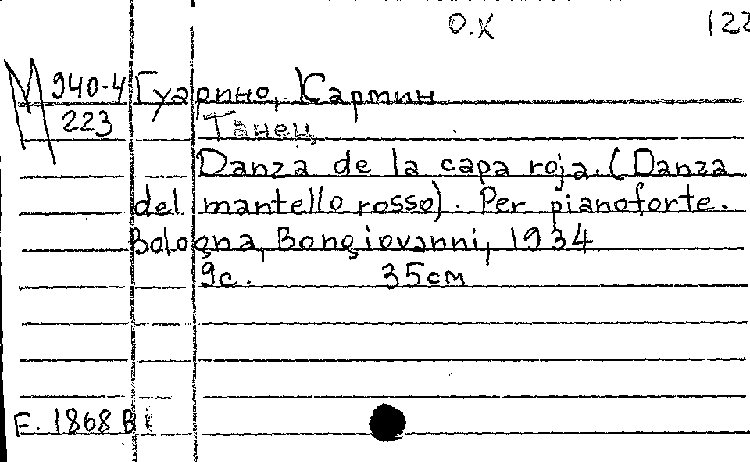 О.К 122
М 940-4 Гуарино, Кармин
223 Танец
Danza de la capa roja. (Danza
del mantello rosso). Per pianoforte.
Bologna, Bongiovanni, 1934
9с. 35см
E. 1868 B